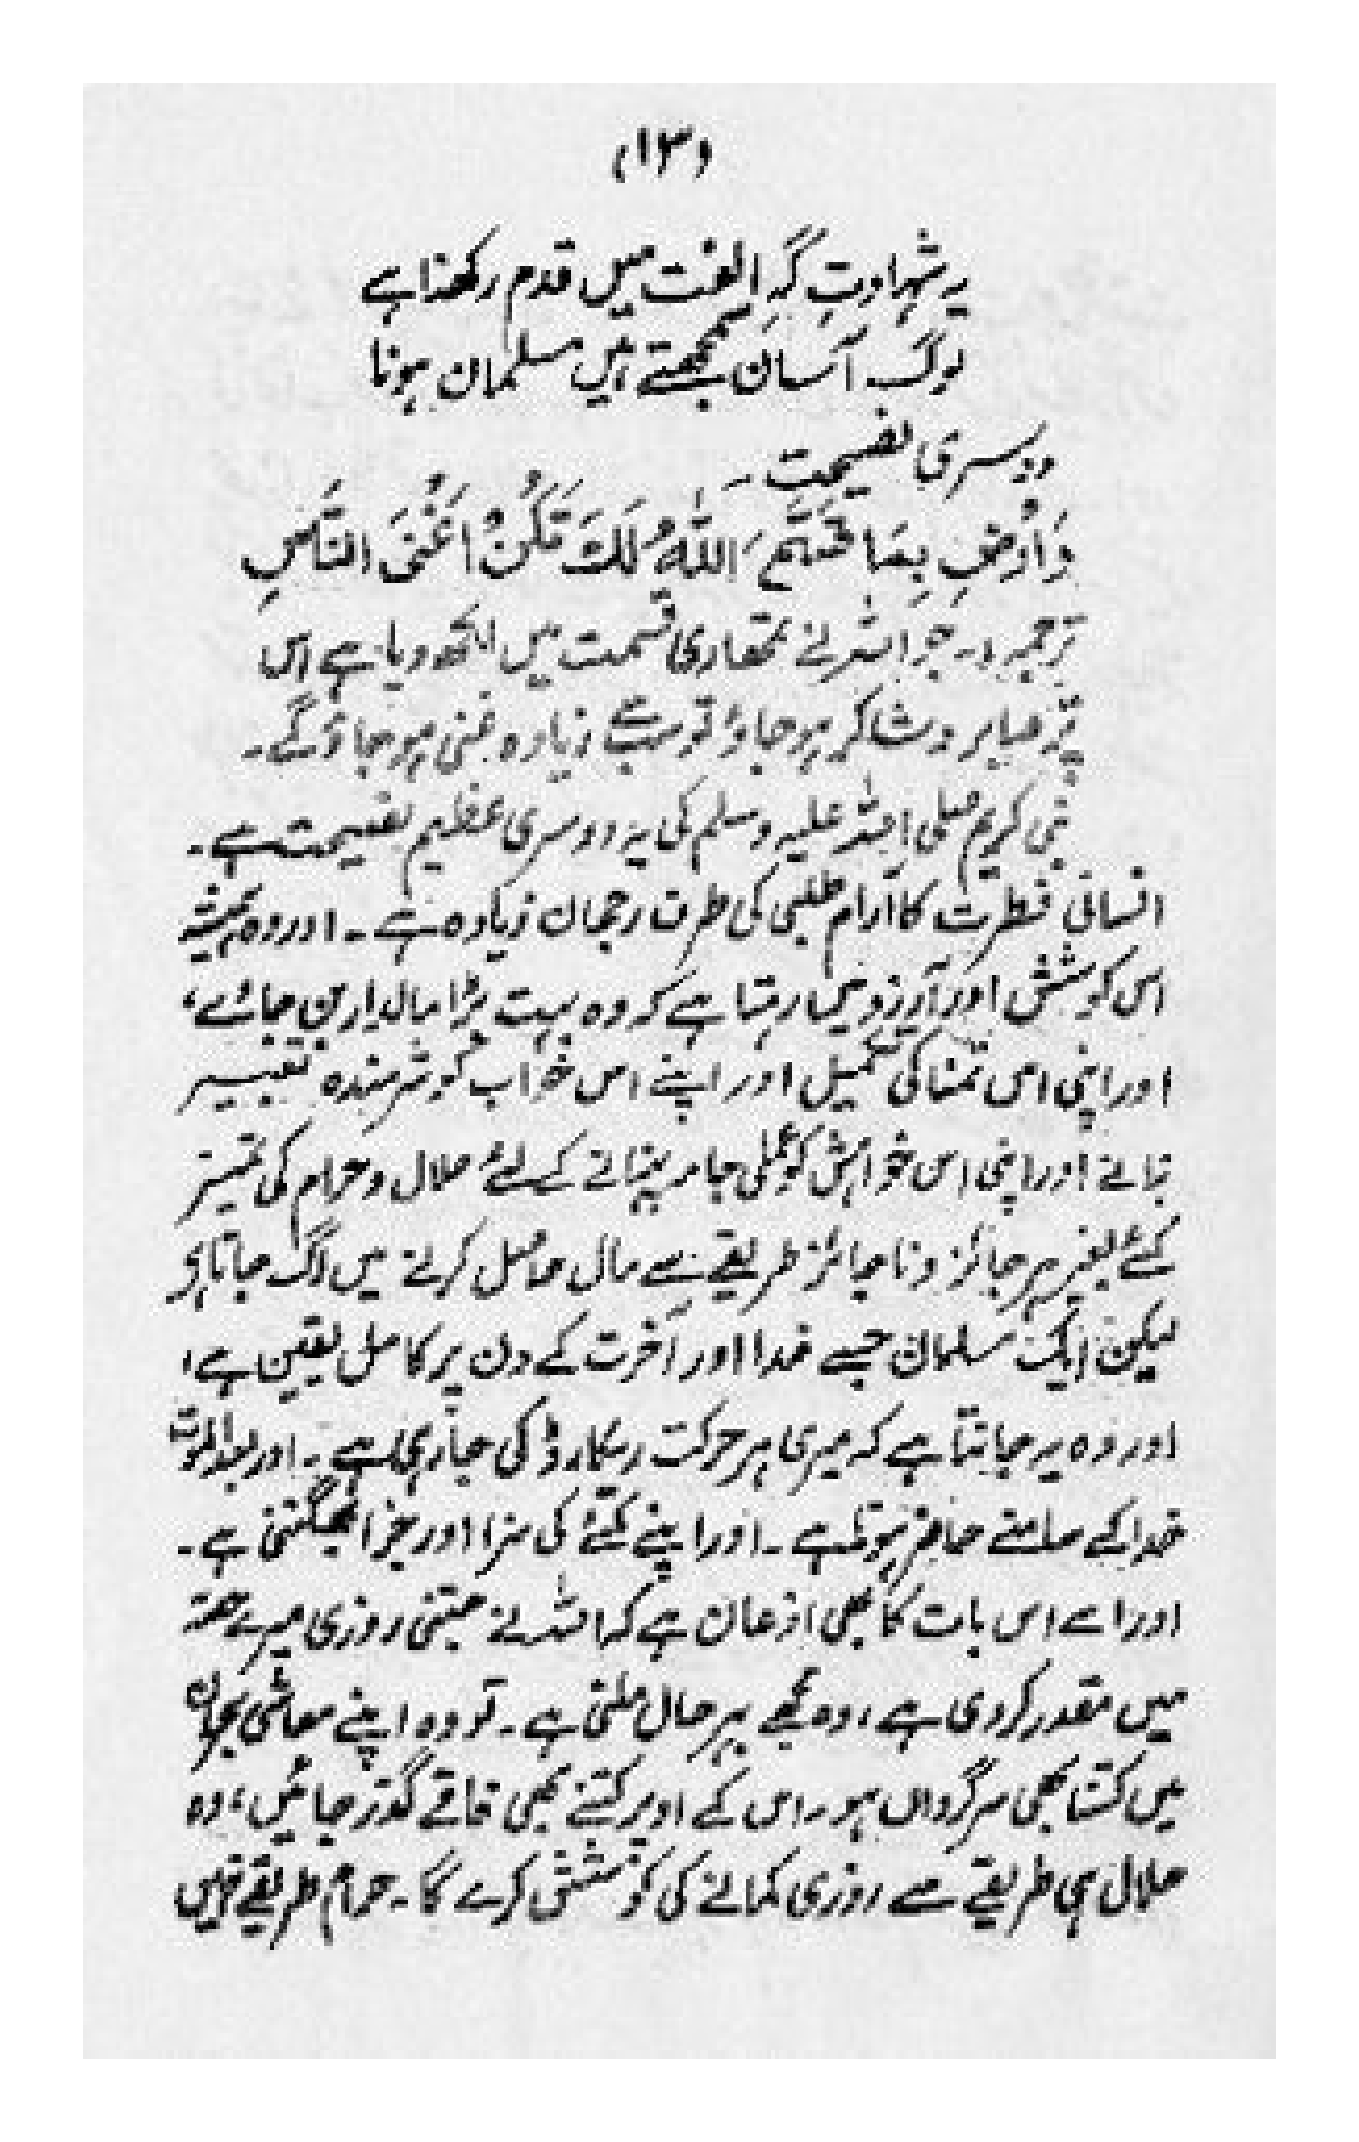 (۱۳)
یہ شہادت گہِ الفت میں قدم رکھنا ہے
لوگ آسان سمجھتے ہیں مسلمان ہونا
دوسری نصیحت ۔
وَارْضِ بِمَا قَسَّمَ اللّٰهُ لَكَ تَكُنْ اَغْنَى النَّاسِ
ترجمہ :۔ جو اللہ نے تمھاری قسمت میں لکھ دیا ہے اس
پر صابر و شاکر ہو جاؤ تو سب سے زیادہ غنی ہو جاؤ گے ۔
نبی کریم صلی اللہ علیہ وسلم کی یہ دوسری عظیم نصیحت ہے ۔
انسانی فطرت کا آرام طلبی کی طرف رجحان زیادہ ہے ۔ اور وہ ہمیشہ
اس کوشش اور آرزو میں رہتا ہے کہ وہ بہت بڑا مالدار بن جائے ،
اور اپنی اس تمنا کی تکمیل اور اپنے اس خواب کو شرمندہ تعبیر
بنانے اور اپنی اس خواہش کو عملی جامہ پہنانے کے لئے حلال و حرام کی تمیز
کئے بغیر ہر جائز و ناجائز طریقے سے مال حاصل کرنے میں لگ جاتا ہے
لیکن ایک مسلمان جسے خدا اور آخرت کے دن پر کامل یقین ہے ،
اور وہ یہ جانتا ہے کہ میری ہر حرکت ریکارڈ کی جا رہی ہے ۔ اور بعد الموت
خدا کے سامنے حاضر ہونا ہے ۔ اور اپنے کئے کی سزا اور جزا بھگتنی ہے ۔
اور اسے اس بات کا بھی اذعان ہے کہ اللہ نے جتنی روزی میرے حصہ
میں مقدر کر دی ہے ، وہ مجھے بہر حال ملنی ہے ۔ تو وہ اپنے معاشی بحران
میں کتنا بھی سرگرداں ہو ، اس کے اوپر کتنے بھی فاقے گذر جائیں ، وہ
حلال ہی طریقے سے روزی کمانے کی کوشش کرے گا ۔ حرام طریقے